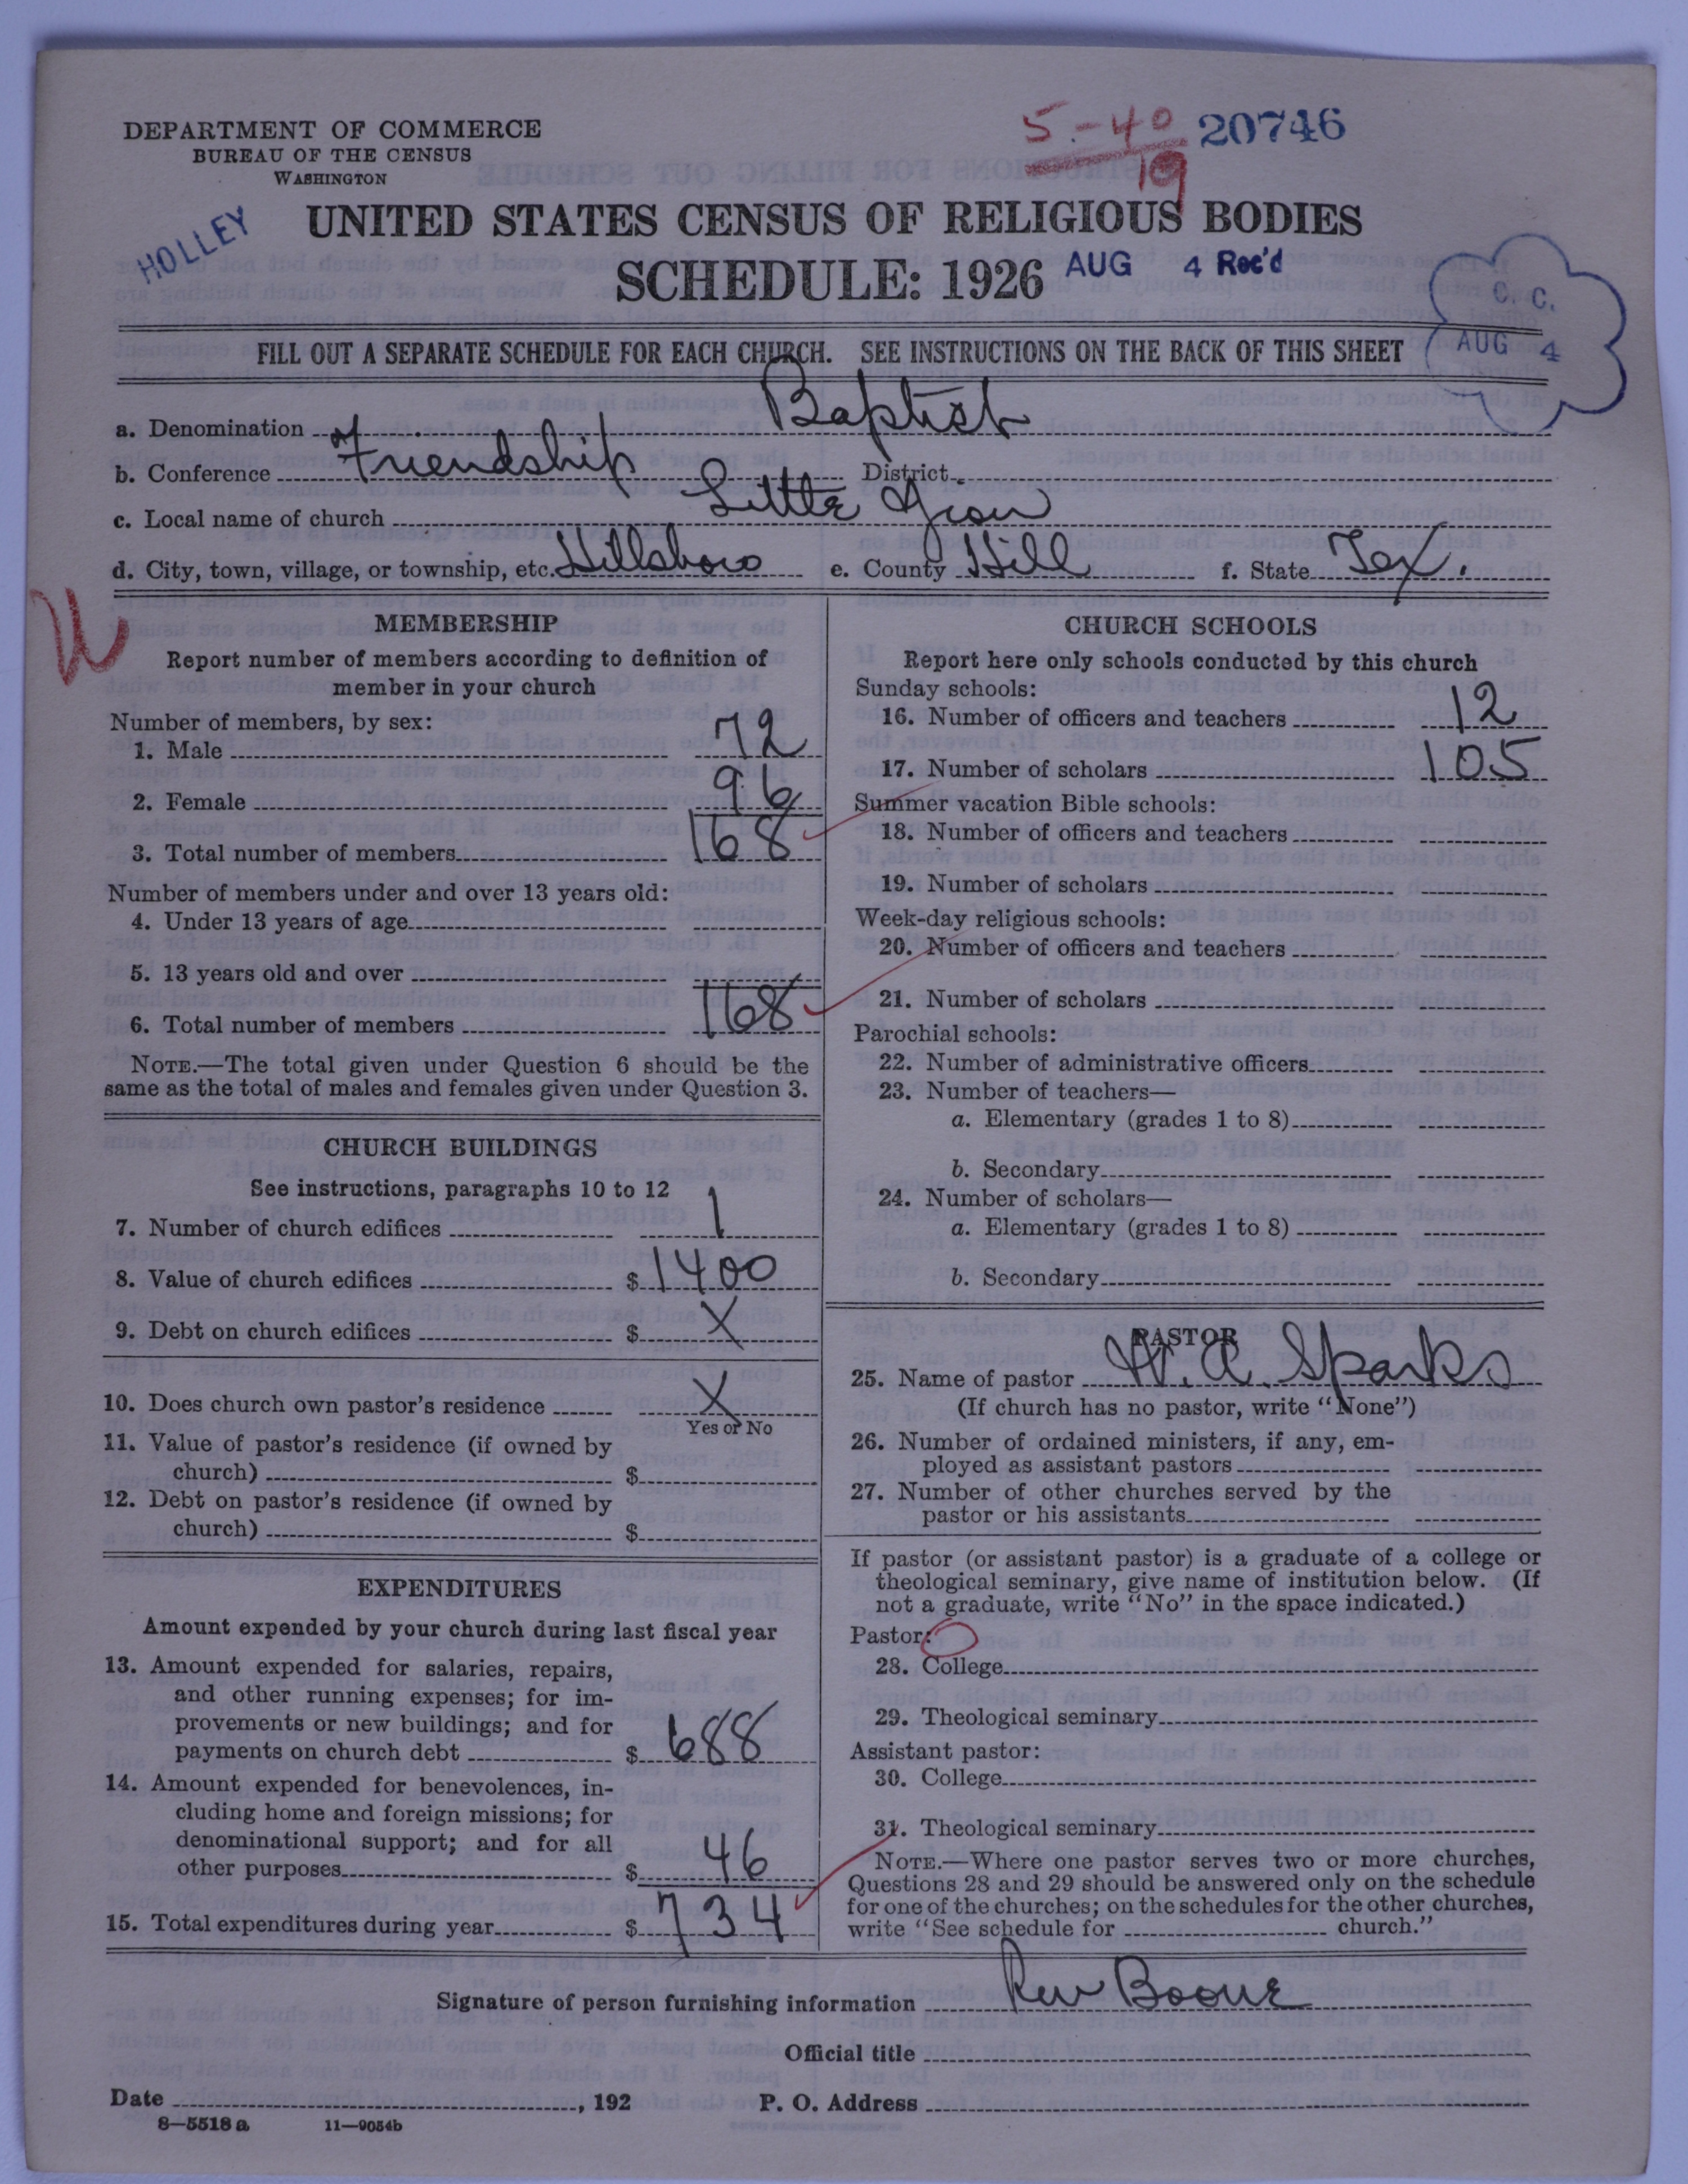 DEPARTMENT OF COMMERCE
BUREAU OF THE CENSUS
WASHINGTON
5-40 20746
19
HOLLEY
UNITED STATES CENSUS OF RELIGIOUS BODIES
SCHEDULE: 1926 AUG 4 Rec'd
C. C.
AUG 4
FILL OUT A SEPARATE SCHEDULE FOR EACH CHURCH. SEE INSTRUCTIONS ON THE BACK OF THIS SHEET
a. Denomination Baptist
b. Conference Friendship District
c. Local name of church Little Zion
d. City, town, village, or township, etc. Hillsboro e. County Hill f. State Tex.
MEMBERSHIP
Report number of members according to definition of
member in your church
Number of members, by sex:
1. Male 72
2. Female 96
3. Total number of members 168
Number of members under and over 13 years old:
4. Under 13 years of age
5. 13 years old and over
6. Total number of members 168
NOTE.—The total given under Question 6 should be the
same as the total of males and females given under Question 3.
CHURCH BUILDINGS
See instructions, paragraphs 10 to 12
7. Number of church edifices 1
8. Value of church edifices $1400
9. Debt on church edifices $ X
10. Does church own pastor's residence X
Yes or No
11. Value of pastor's residence (if owned by
church) $
12. Debt on pastor's residence (if owned by
church) $
EXPENDITURES
Amount expended by your church during last fiscal year
13. Amount expended for salaries, repairs,
and other running expenses; for im-
provements or new buildings; and for
payments on church debt $ 688
14. Amount expended for benevolences, in-
cluding home and foreign missions; for
denominational support; and for all
other purposes $ 46
15. Total expenditures during year $ 734
CHURCH SCHOOLS
Report here only schools conducted by this church
Sunday schools:
16. Number of officers and teachers 12
17. Number of scholars 105
Summer vacation Bible schools:
18. Number of officers and teachers
19. Number of scholars
Week-day religious schools:
20. Number of officers and teachers
21. Number of scholars
Parochial schools:
22. Number of administrative officers
23. Number of teachers—
a. Elementary (grades 1 to 8)
b. Secondary
24. Number of scholars—
a. Elementary (grades 1 to 8)
b. Secondary
PASTOR
25. Name of pastor W. A. Sparks
(If church has no pastor, write "None")
26. Number of ordained ministers, if any, em-
ployed as assistant pastors
27. Number of other churches served by the
pastor or his assistants
If pastor (or assistant pastor) is a graduate of a college or
theological seminary, give name of institution below. (If
not a graduate, write "No" in the space indicated.)
Pastor:
28. College
29. Theological seminary
Assistant pastor:
30. College
31. Theological seminary
NOTE.—Where one pastor serves two or more churches,
Questions 28 and 29 should be answered only on the schedule
for one of the churches; on the schedules for the other churches,
write "See schedule for church."
Signature of person furnishing information Rev Boone
Official title
Date , 192 P. O. Address
8—5518a 11—9054b